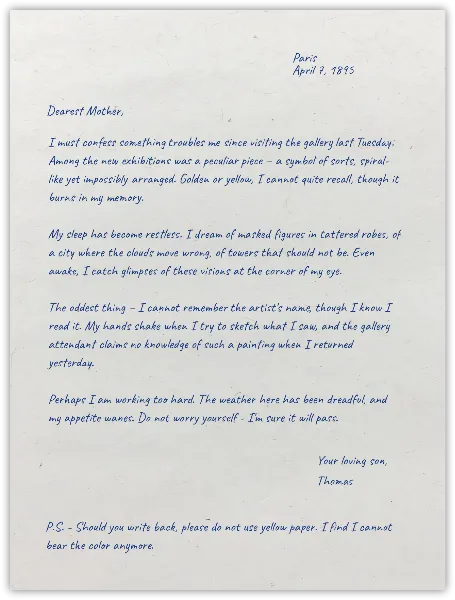 Paris
April 7, 1895
Dearest Mother,
I must confess something troubles me since visiting the gallery last Tuesday.
Among the new exhibitions was a peculiar piece – a symbol of sorts, spiral-
like yet impossibly arranged. Golden or yellow, I cannot quite recall, though it
burns in my memory.
My sleep has become restless. I dream of masked figures in tattered robes, of
a city where the clouds move wrong, of towers that should not be. Even
awake, I catch glimpses of these visions at the corner of my eye.
The oddest thing – I cannot remember the artist's name, though I know I
read it. My hands shake when I try to sketch what I saw, and the gallery
attendant claims no knowledge of such a painting when I returned
yesterday.
Perhaps I am working too hard. The weather here has been dreadful, and
my appetite wanes. Do not worry yourself - I'm sure it will pass.
Your loving son,
Thomas
P.S. - Should you write back, please do not use yellow paper. I find I cannot
bear the color anymore.